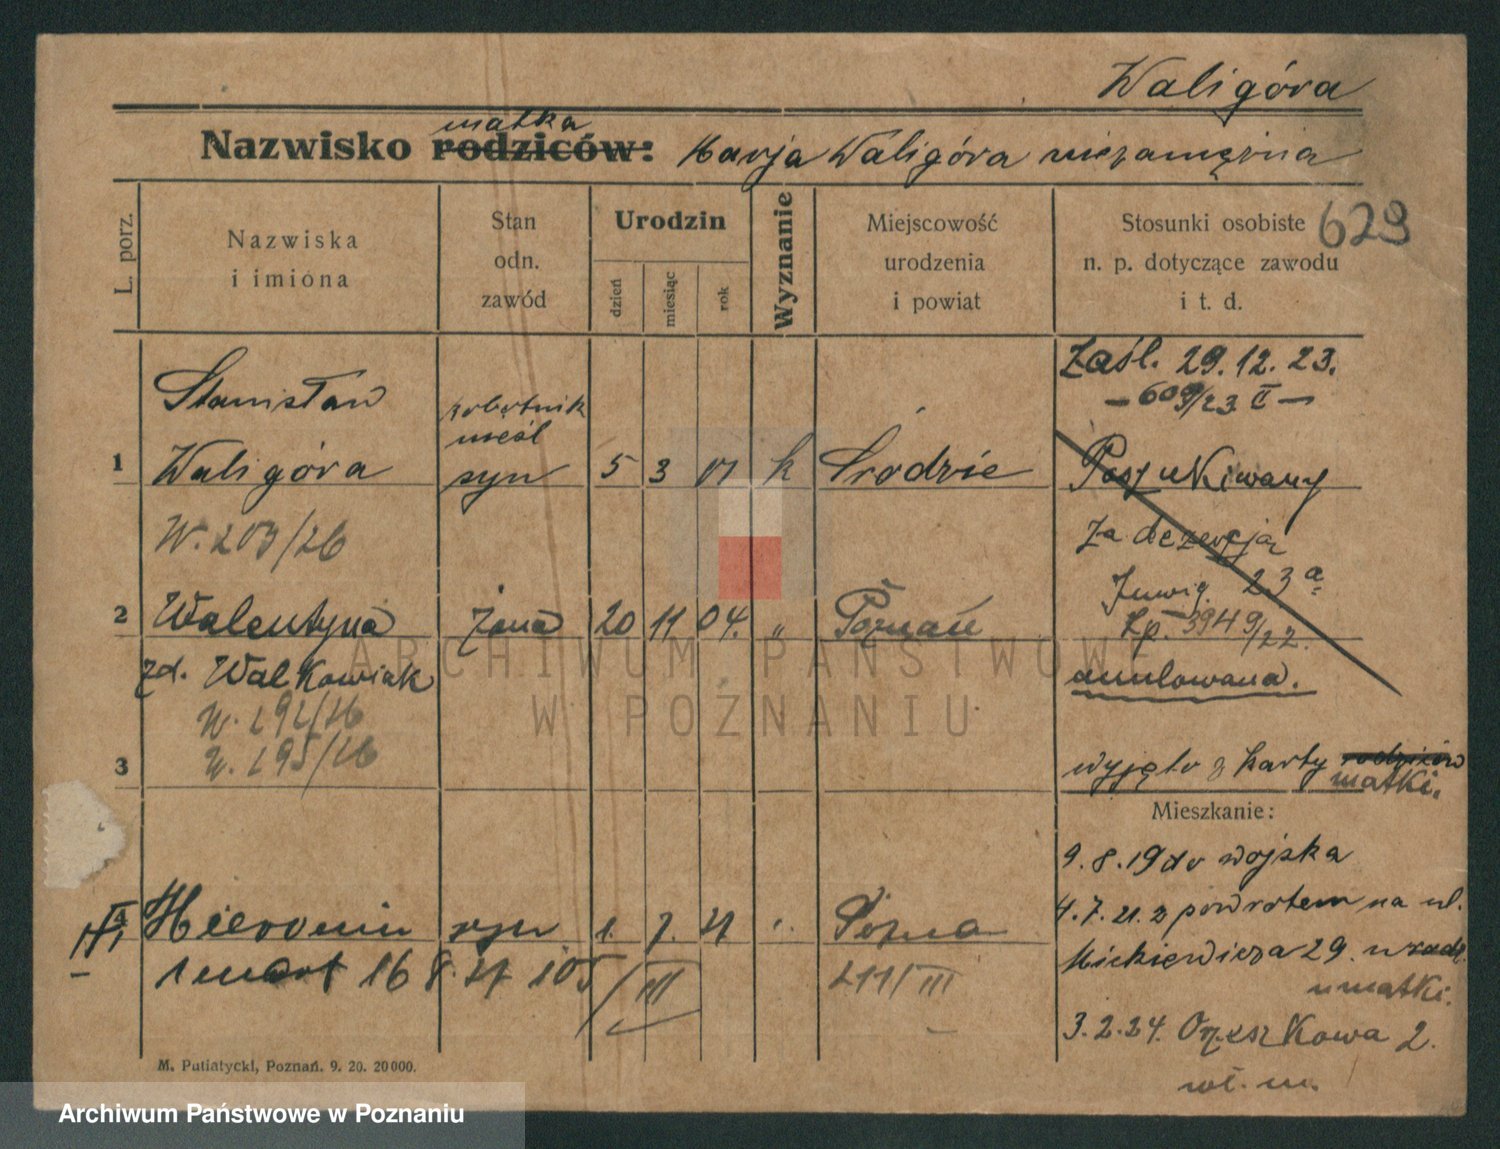 Waligóra
matka
Nazwisko rodziców: Marja Waligóra niezamężna
629
L. porz.
Nazwiska i imiona
Stan odn. zawód
Urodzin
dzień
miesiąc
rok
Wyznanie
Miejscowość urodzenia i powiat
Stosunki osobiste n. p. dotyczące zawodu i t. d.
Zaśl. 29.12.23.
— 609/23 I —
Stanisław
robotnik
1 Waligóra syn 5 3 01 k Środzie
Poszukiwany
W. 203/26
za dezercją
23a
Lp. 3949/22.
2 Walentyna żona 20 11 04. " Poznań
zd. Walkowiak
anulowana.
W. 191/26
W. 195/26
3
wyjęto z karty rodziców
matki.
Mieszkanie:
9.8.19 do wojska
4.7.21. z powrotem na ul.
Mickiewicza 29.
u matki.
Hieronim syn 1. 7. "
zmarł 16 8. 105/III
211/III
3.2.24. Orzeszkowa 2.
wł. m.
M. Putiatycki, Poznań. 9. 20. 20000.
ARCHIWUM PAŃSTWOWE
W POZNANIU
Archiwum Państwowe w Poznaniu